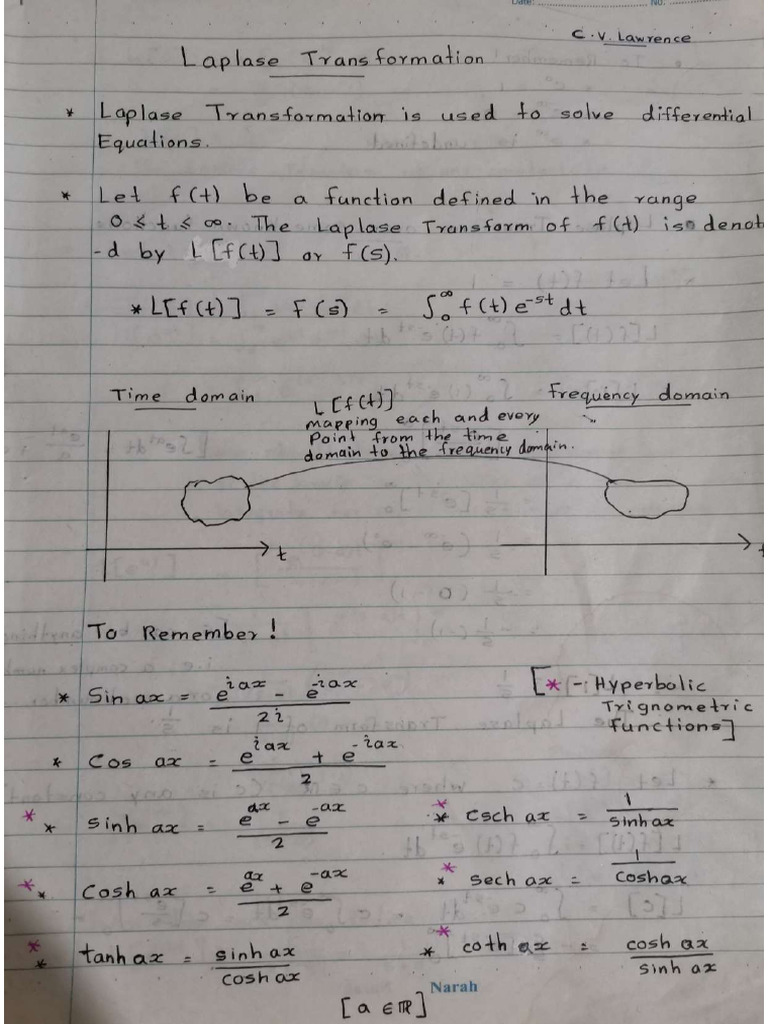 Date: No.
C.V. Lawrence
Laplase Transformation
* Laplase Transformation is used to solve differential
Equations.
* Let f(t) be a function defined in the range
0 ≤ t ≤ ∞. The Laplase Transform of f(t) is denot
-d by L[f(t)] or f(s).
* L[f(t)] = F(s) = ∫₀^∞ f(t) e^-st dt
Time domain
L[f(t)]
mapping each and every
Point from the time
domain to the frequency domain.
frequency domain
t
To Remember!
* Sin ax = (e^iax - e^-iax)/2i
[* - Hyperbolic
Trignometric
functions]
* Cos ax = (e^iax + e^-iax)/2
* * sinh ax = (e^ax - e^-ax)/2
* * csch ax = 1/sinh ax
* * Cosh ax = (e^ax + e^-ax)/2
* * sech ax = 1/coshax
* * tanh ax = sinh ax/cosh ax
* * coth ax = cosh ax/sinh ax
Narah
[a ∈ ℝ]